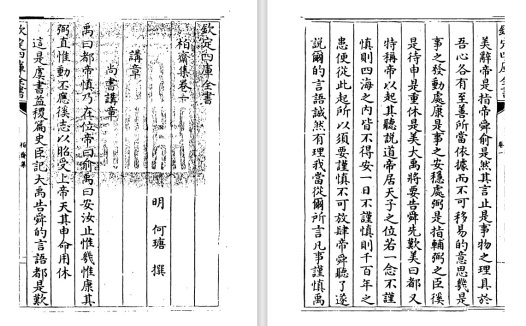 欽定四庫全書
柏齋集卷十
明 何瑭 撰
講章
尚書講章
禹曰都帝慎乃在位帝曰俞禹曰安汝止惟幾惟康其
弼直惟動丕應徯志以昭受上帝天其申命用休
這是虞書益稷篇史臣記大禹告舜的言語都是歎
柏齋集
美辭帝是指帝舜俞是然其言止是事物之理具於
吾心各有至善所當依據而不可移易的意思幾是
事之發動處康是事之安穩處弼是指輔弼之臣徯
是待申是重休是美大禹將要告舜先歎美曰都又
特稱帝以起其聽說道帝居天子之位若一念不謹
慎則四海之內皆不得安一日不謹慎則千百年之
患便從此起所以須要謹慎不可放肆帝舜聽了遂
說爾的言語誠然有理我當從爾所言凡事謹慎禹